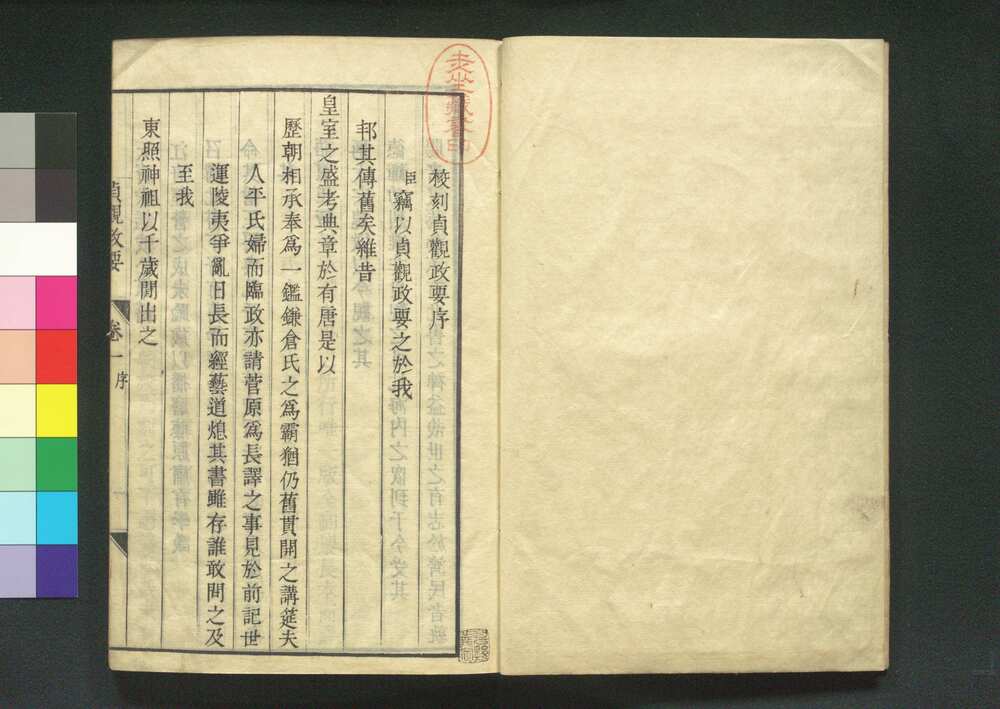 校刻貞觀政要序
臣竊以貞觀政要之於我
邦其傳舊矣雖昔
皇室之盛考典章於有唐是以
歷朝相承奉爲一鑑鎌倉氏之爲霸猶仍舊貫開之講筵夫
人平氏婦而臨政亦請菅原爲長譯之事見於前記世
運陵夷爭亂日長而經藝道熄其書雖存誰敢問之及
至我
東照神祖以千歲間出之
貞觀政要
卷一
序
一